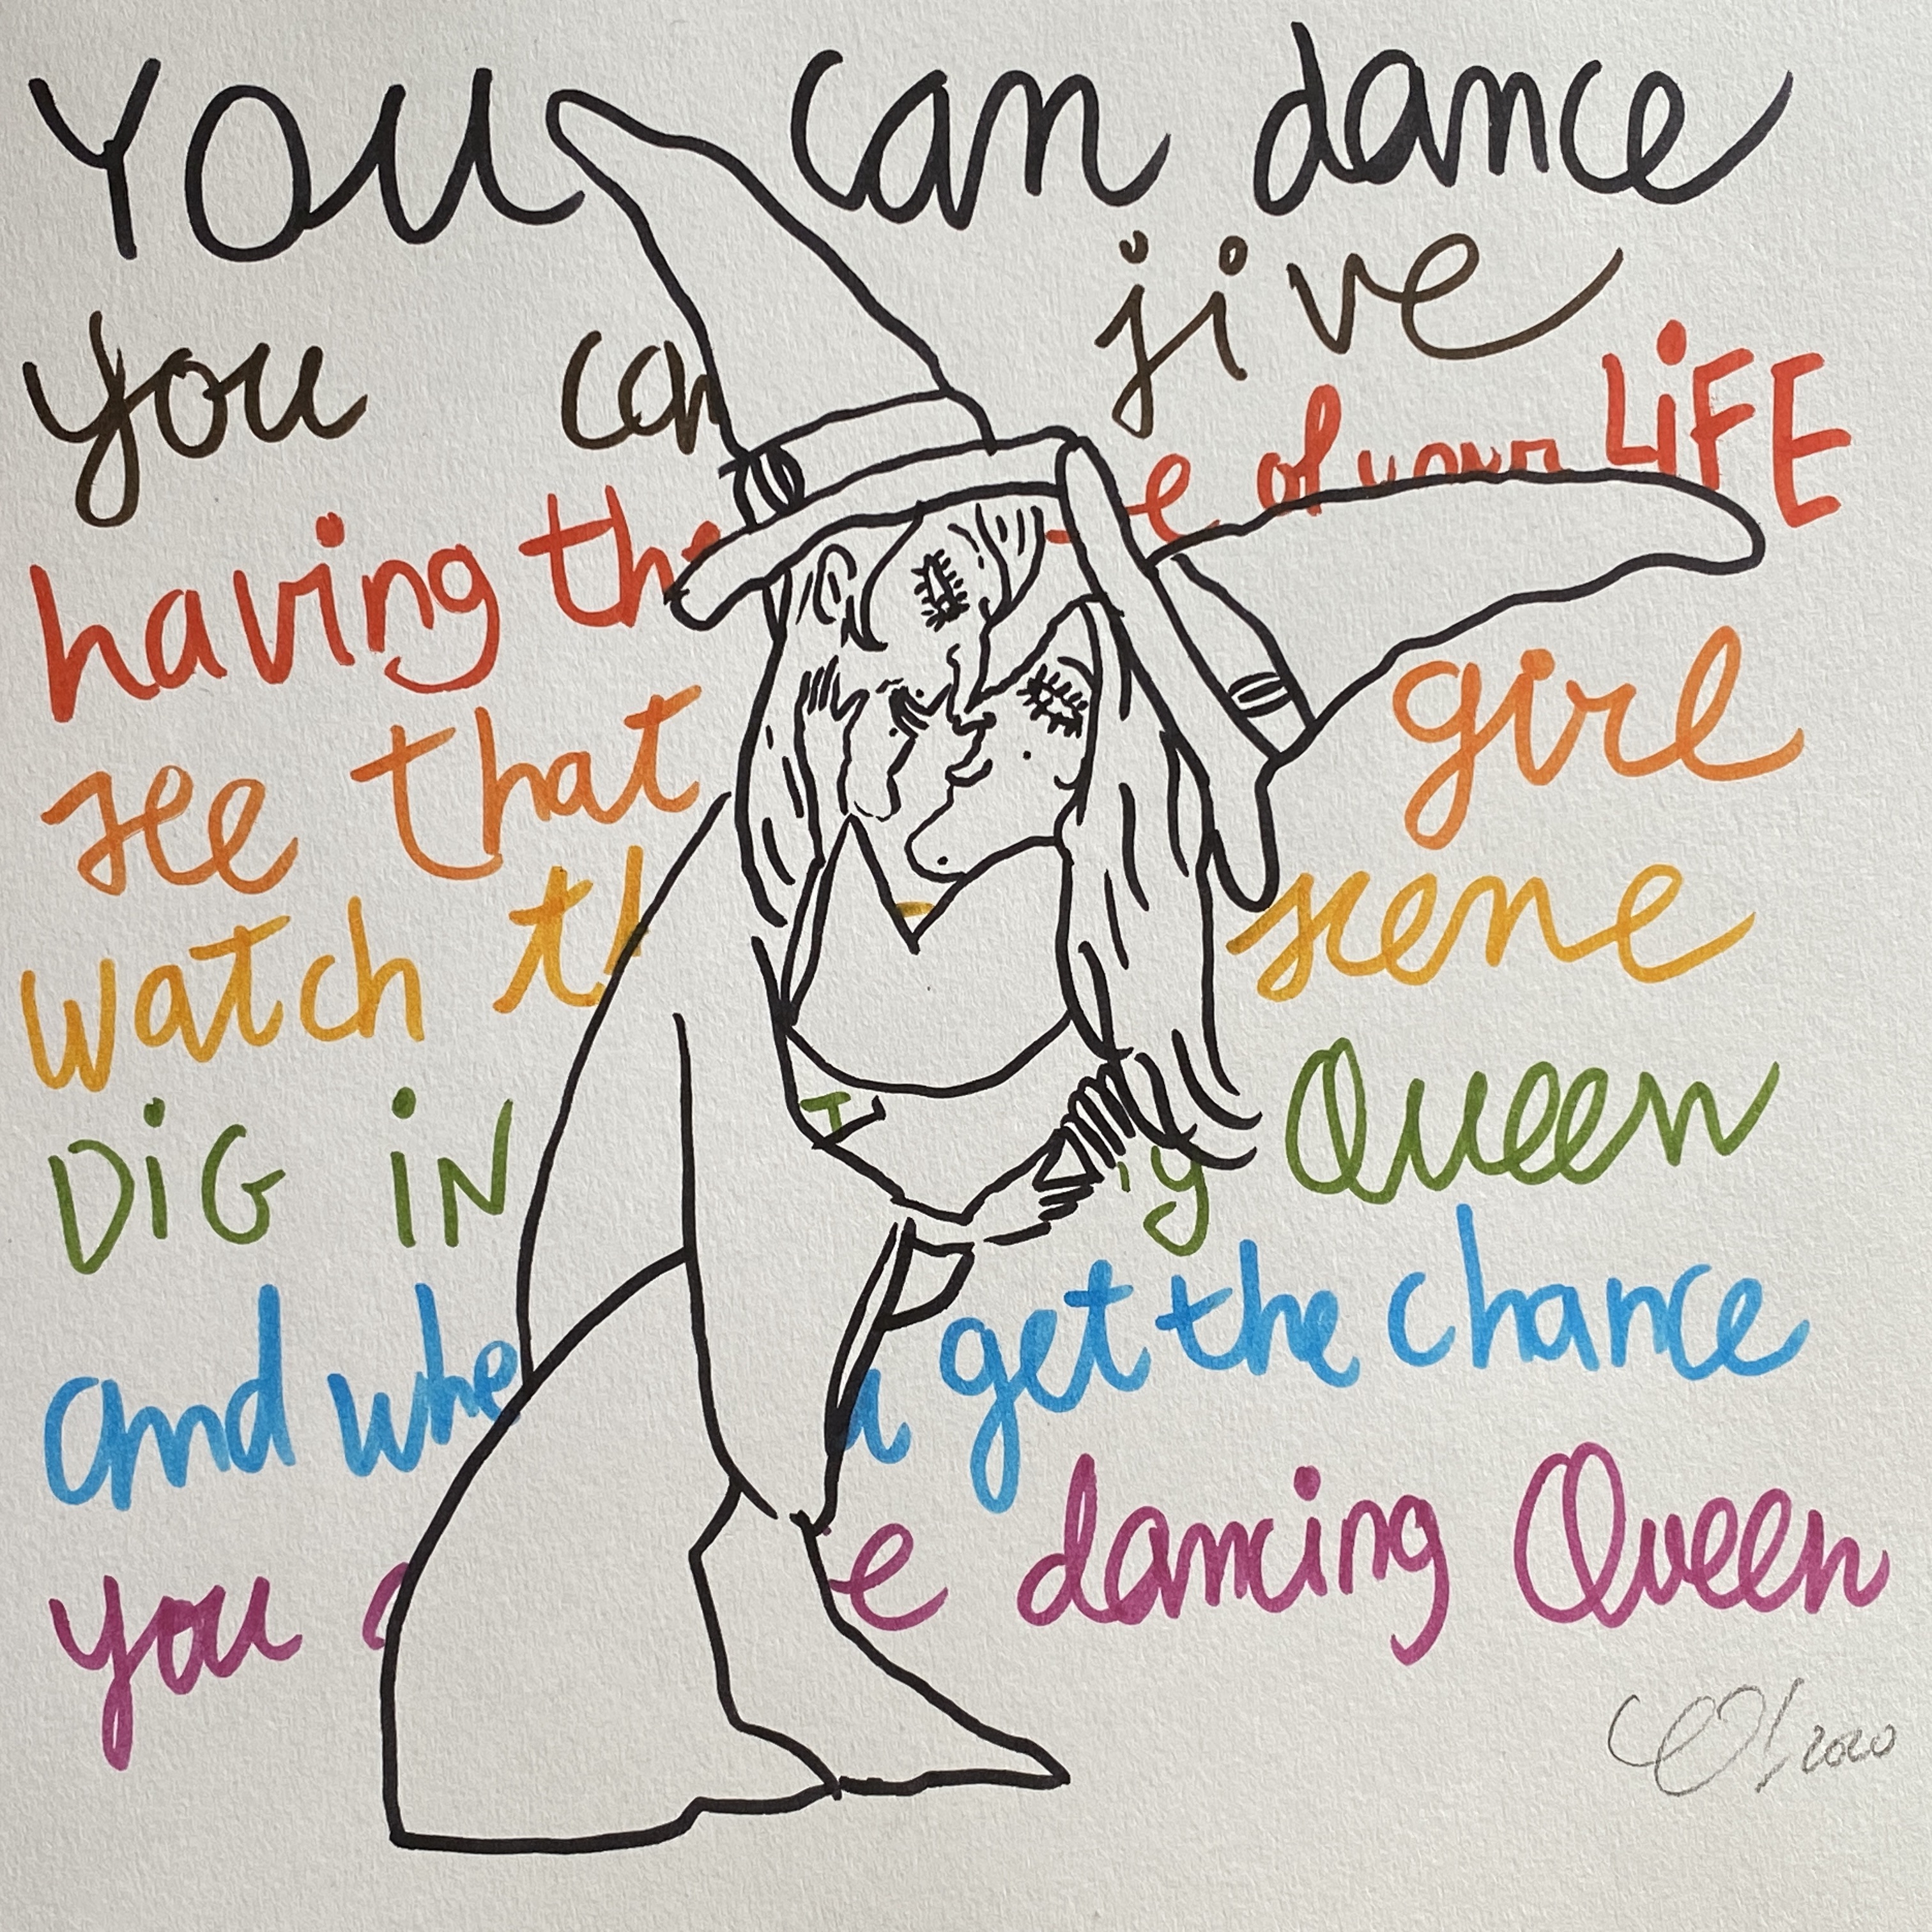 You can dance
you can jive
having the e of your LiFE
see that girl
watch th scene
DiG iN y Queen
and whe u get the chance
you e dancing Queen
2020